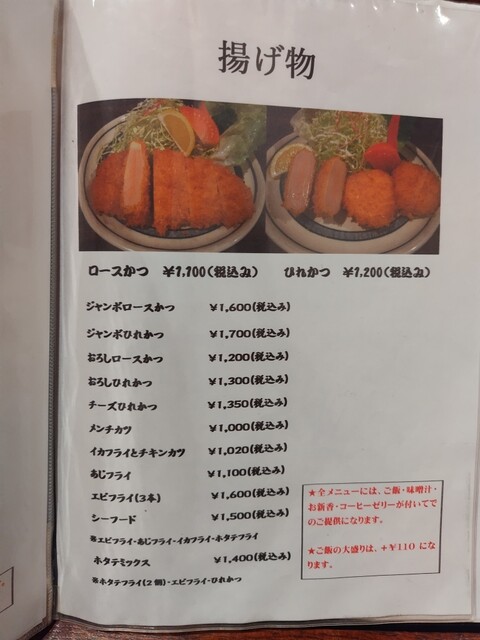 揚げ物
ロースかつ ¥1,100(税込み) ひれかつ ¥1,200(税込み)
ジャンボロースかつ ¥1,600(税込み)
ジャンボひれかつ ¥1,700(税込み)
おろしロースかつ ¥1,200(税込み)
おろしひれかつ ¥1,300(税込み)
チーズひれかつ ¥1,350(税込み)
メンチカツ ¥1,000(税込み)
イカフライとチキンカツ ¥1,020(税込み)
あじフライ ¥1,100(税込み)
エビフライ(3本) ¥1,600(税込み)
シーフード ¥1,500(税込み)
※エビフライ・あじフライ・イカフライ・ホタテフライ
ホタテミックス ¥1,400(税込み)
※ホタテフライ(2個)・エビフライ・ひれかつ
★全メニューには、ご飯・味噌汁・
お新香・コーヒーゼリーが付いてで
のご提供になります。
★ご飯の大盛りは、+¥110 にな
ります。